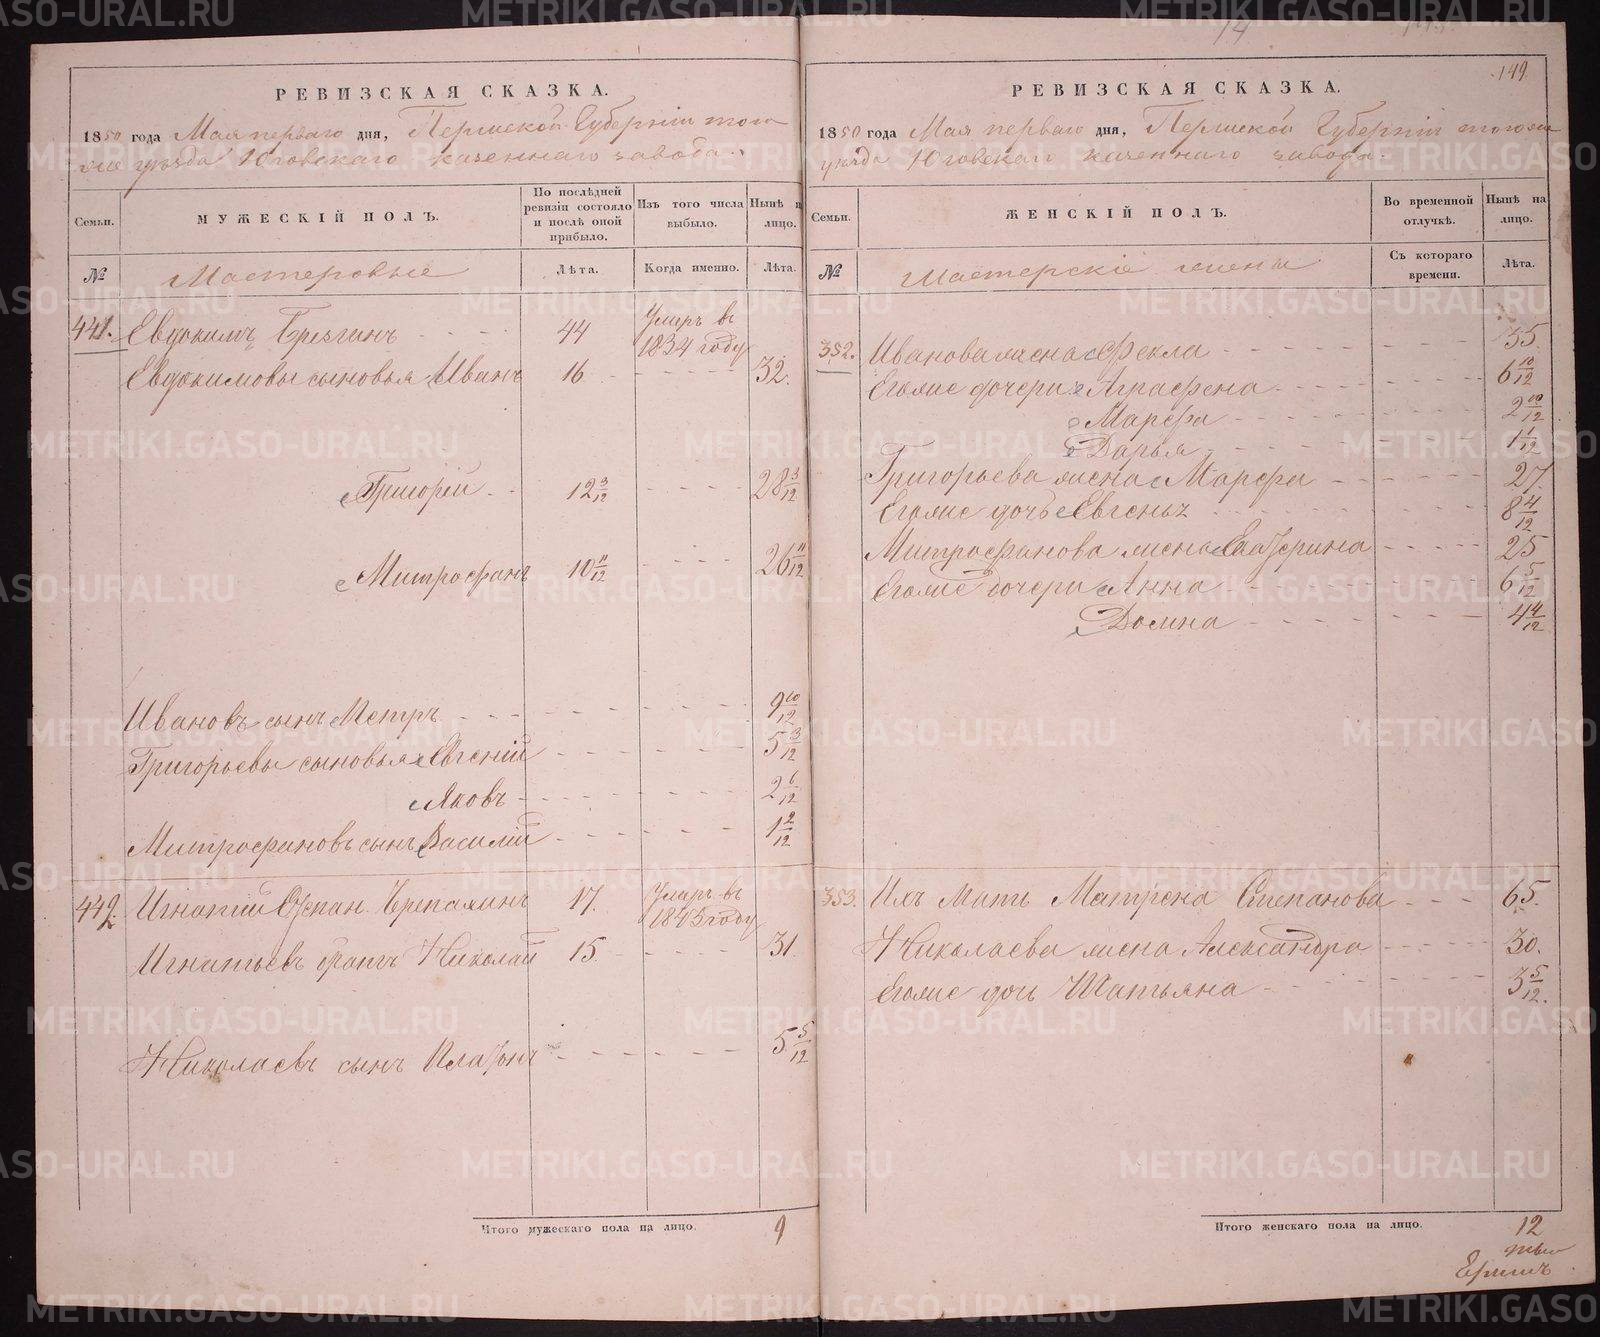 149
РЕВИЗСКАЯ СКАЗКА.
1850 года Мая перваго дня, Пермской Губерніи того
же уѣзда Юговскаго казеннаго завода.
Семьи.
МУЖЕСКІЙ ПОЛЪ.
По послѣдней ревизіи состояло и послѣ оной прибыло.
Изъ того числа выбыло.
Нынѣ на лицо.
№
Мастеровые
Лѣта.
Когда именно.
Лѣта.
441. Евдокимъ 44 Умеръ въ 1834 году
Евдокимовы сыновья Иванъ 16 32.
Григорій 12 3/12 28 3/12
Митрофанъ 10 11/12 26 11/12
Ивановъ сынъ Петръ 9 10/12
Григорьевы сыновья Евгеній 5 3/12
Яковъ 2 6/12
Митрофановъ сынъ Василій 1 2/12
442. Игнатій 17. Умеръ въ 1845 году
Игнатьевъ братъ Николай 15 31
Николаевъ сынъ Платонъ 5 5/12
Итого мужескаго пола на лицо. 9
РЕВИЗСКАЯ СКАЗКА.
1850 года Мая перваго дня, Пермской Губерніи тогоже
уѣзда Юговскаго казеннаго завода.
Семьи.
ЖЕНСКІЙ ПОЛЪ.
Во временной отлучкѣ.
Нынѣ на лицо.
№
Мастерскіе жены
Съ котораго времени.
Лѣта.
352. Иванова жена Фекла 35.
Егоже дочери Аграфена 6 10/12
Марфа 2 10/12
Дарья 1 1/12
Григорьева жена Марфа 27.
Егоже дочь Евгенья 8 4/12
Митрофанова жена Екатерина 25
Егоже дочери Анна 6 5/12
Домна 4 4/12
353. Ихъ мать Матрена Степанова 65.
Николаева жена Александра 30.
Егоже дочь Татьяна 3 5/12.
Итого женскаго пола на лицо. 12
METRIKI.GASO-URAL.RU